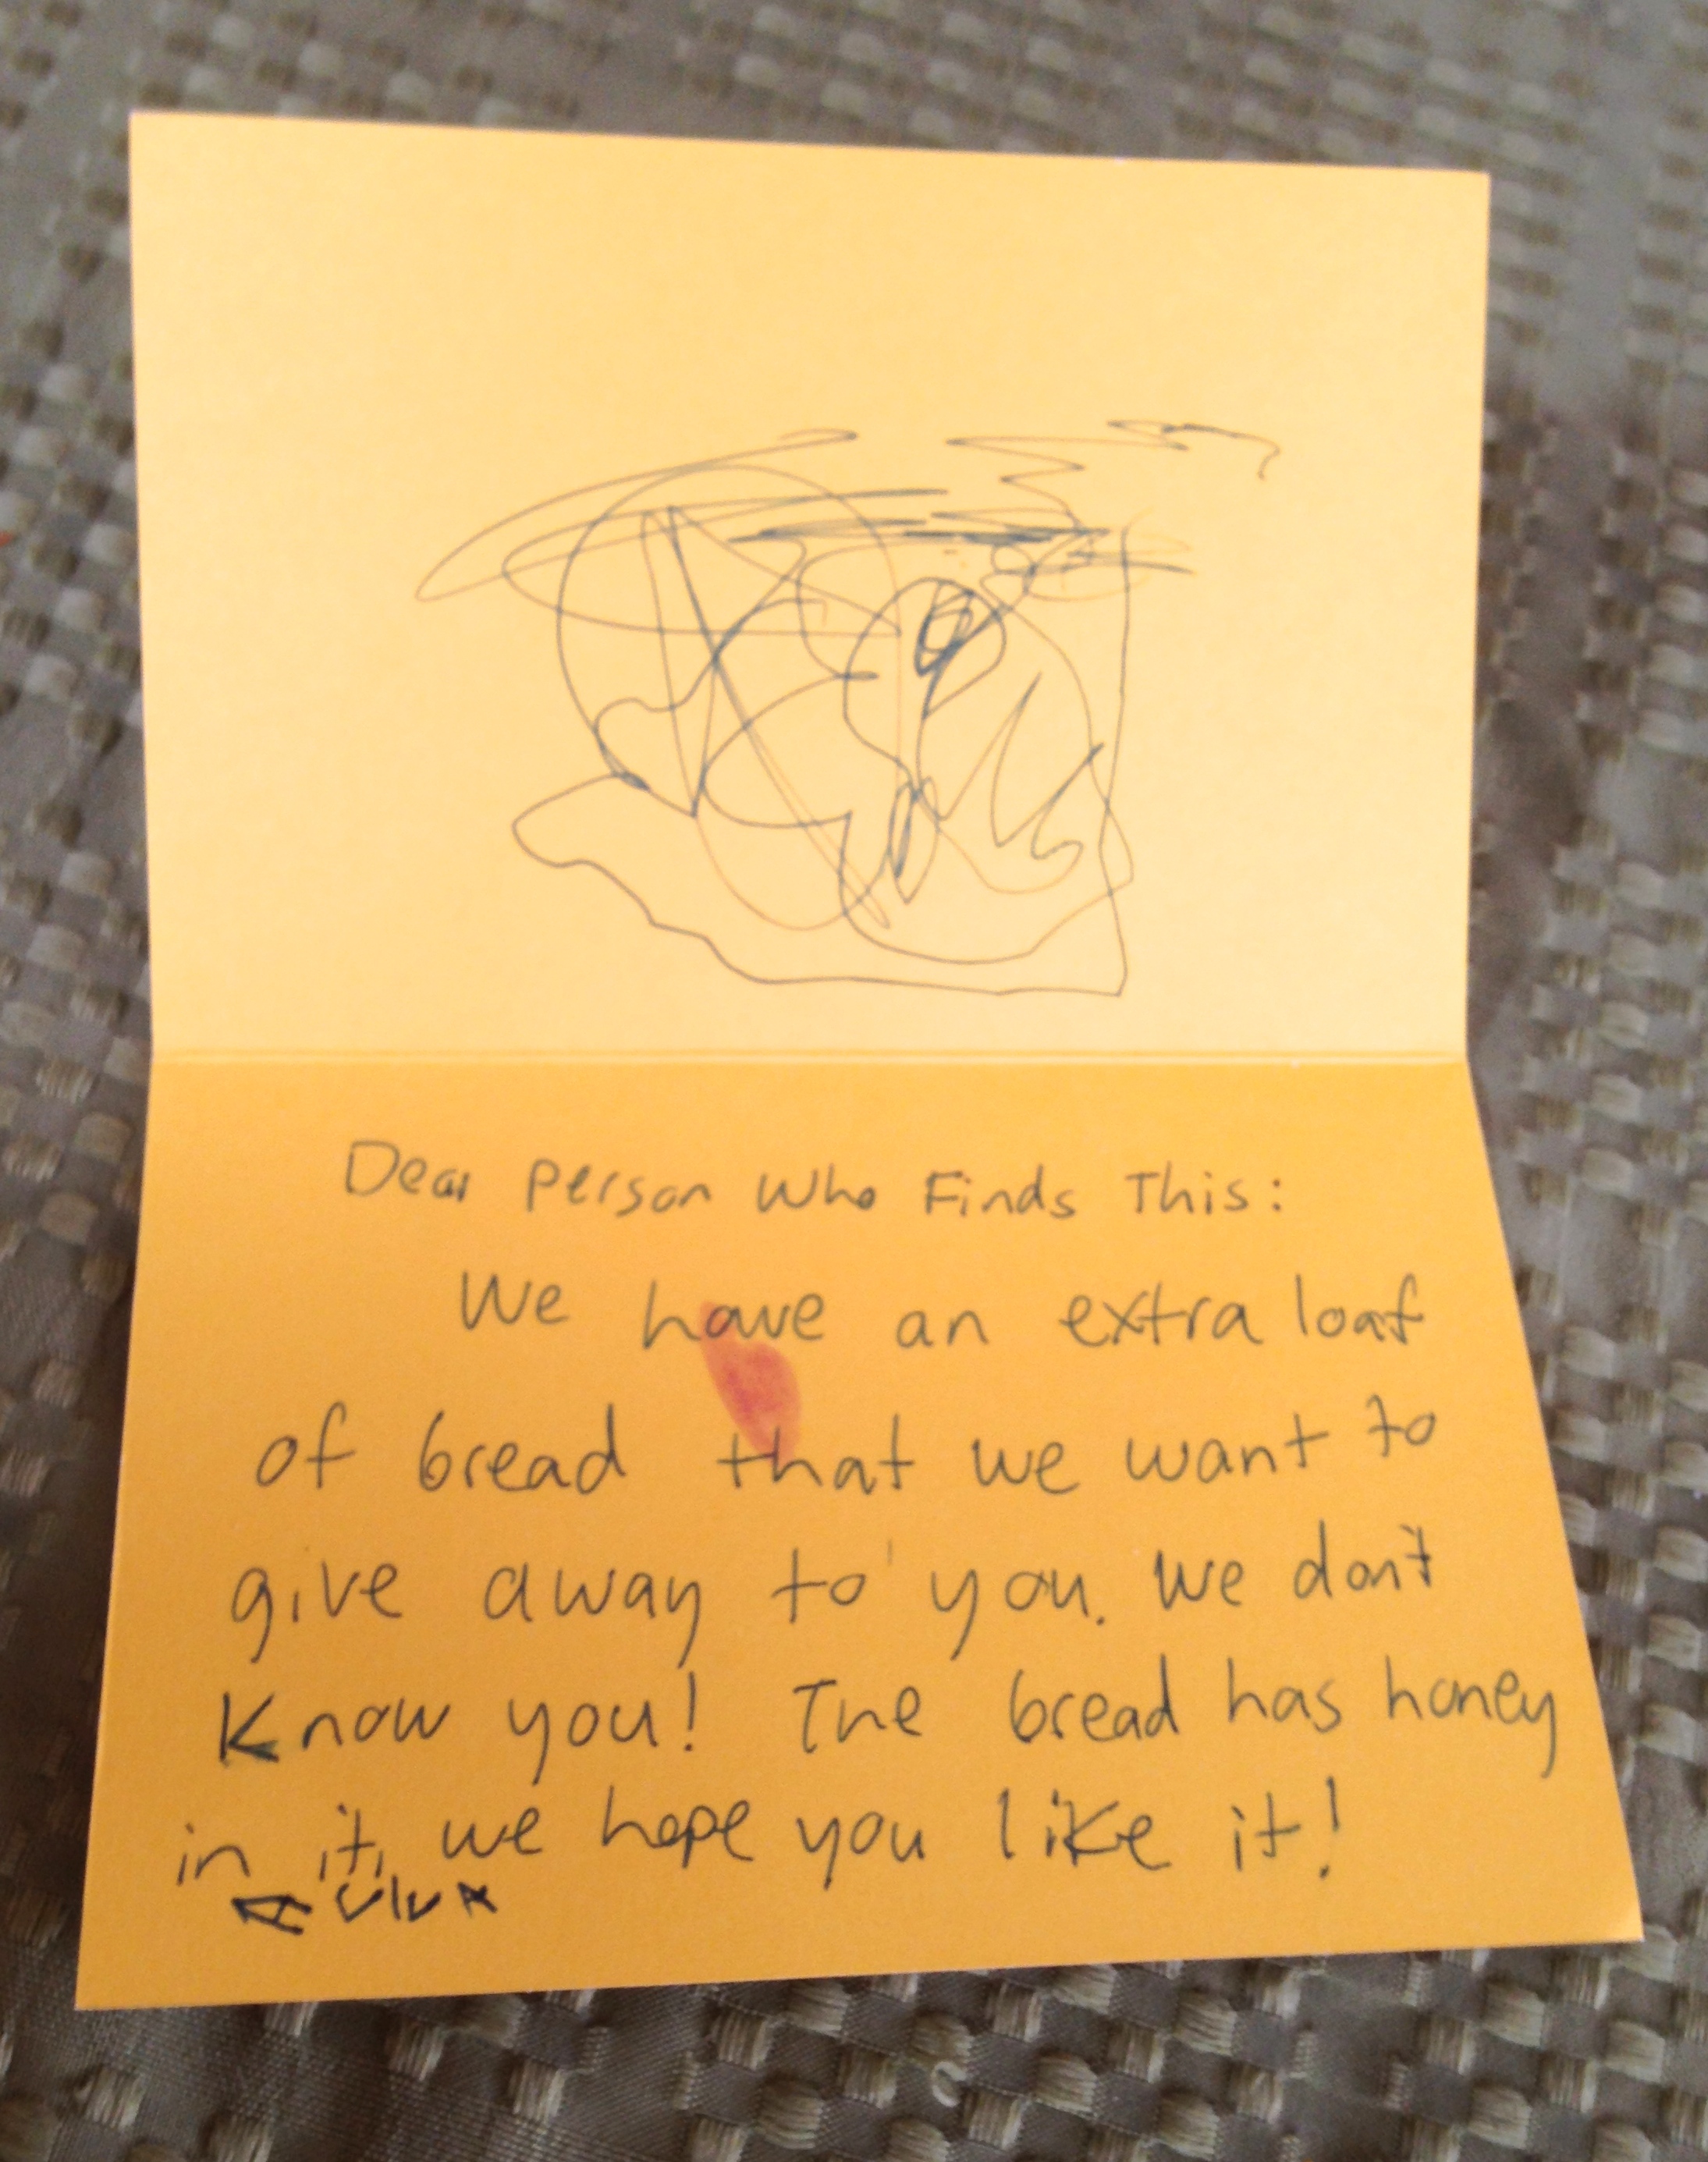 Dear Person Who Finds This:
We have an extra loaf
of bread that we want to
give away to you. We don't
Know you! The bread has honey
in it, we hope you like it!